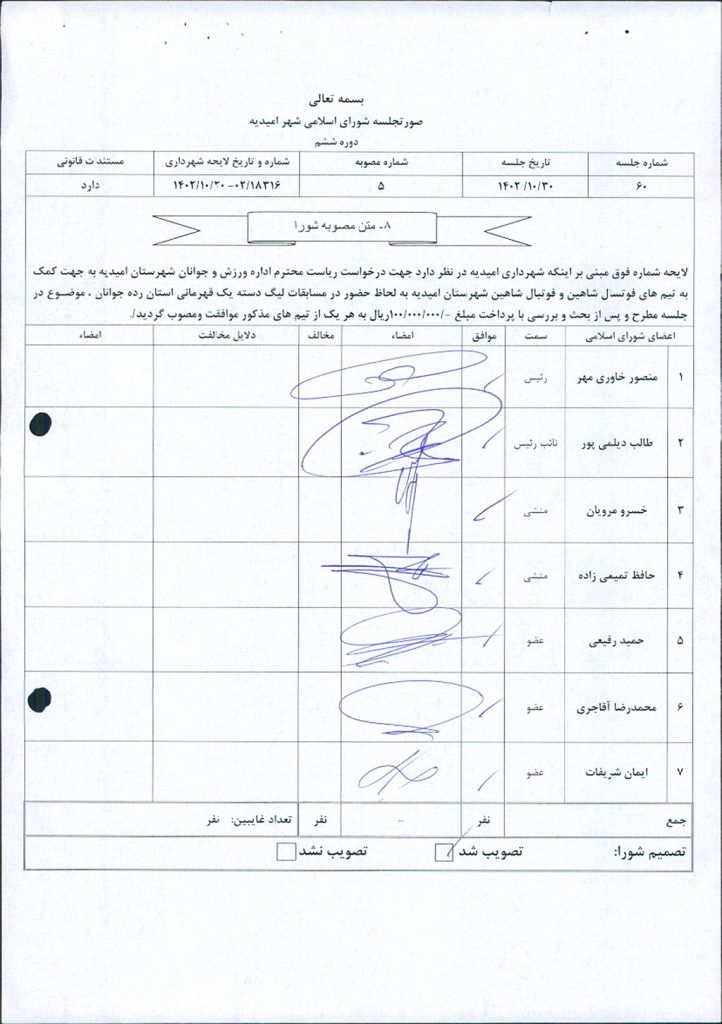 بسمه تعالی
صورتجلسه شورای اسلامی شهر امیدیه
دوره ششم
شماره جلسه تاریخ جلسه شماره مصوبه شماره و تاریخ لایحه شهرداری مستندات قانونی
۶۰ ۱۴۰۲/۱۰/۳۰ ۵ ۰۲/۱۸۳۱۶-۱۴۰۲/۱۰/۲۰ دارد
۸- متن مصوبه شورا
لایحه شماره فوق مبنی بر اینکه شهرداری امیدیه در نظر دارد جهت درخواست ریاست محترم اداره ورزش و جوانان شهرستان امیدیه به جهت کمک
به تیم های فوتسال شاهین و فوتبال شاهین شهرستان امیدیه به لحاظ حضور در مسابقات لیگ دسته یک قهرمانی استان رده جوانان ، موضوع در
جلسه مطرح و پس از بحث و بررسی با پرداخت مبلغ -/۱۰۰/۰۰۰/۰۰۰ریال به هر یک از تیم های مذکور موافقت ومصوب گردید./
اعضای شورای اسلامی سمت موافق امضاء مخالف دلایل مخالفت امضاء
۱ منصور خاوری مهر رئیس
۲ طالب دیلمی پور نائب رئیس
۳ خسرو مرویان منشی
۴ حافظ تمیمی زاده منشی
۵ حمید رفیعی عضو
۶ محمدرضا آقاجری عضو
۷ ایمان شریفات عضو
جمع نفر -- نفر تعداد غایبین: نفر
تصمیم شورا: تصویب شد تصویب نشد